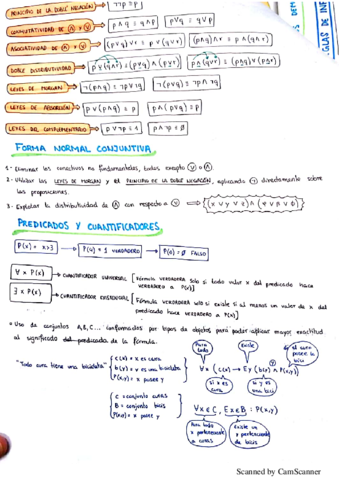 PRINCIPIO DE LA DOBLE NEGACIÓN ¬¬p = p
CONMUTATIVIDAD DE ∧ Y ∨ p∧q = q∧p p∨q = q∨p
ASOCIATIVIDAD DE ∧ Y ∨ (p∨q)∨r = p∨(q∨r) (p∧q)∧r = p∧(q∧r)
DOBLE DISTRIBUTIVIDAD p∨(q∧r) = (p∨q)∧(p∨r) p∧(q∨r) = (p∧q)∨(p∧r)
LEYES DE MORGAN ¬(p∧q) = ¬p∨¬q ¬(p∨q) = ¬p∧¬q
LEYES DE ABSORCIÓN p∨(p∧q) = p p∧(p∨q) = p
LEYES DEL COMPLEMENTARIO p∨¬p = 1 p∧¬p = 0
FORMA NORMAL CONJUNTIVA
1- Eliminar los conectivos no fundamentales, todos excepto ∨ o ∧
2- Utilizar las LEYES DE MORGAN y el PRINCIPIO DE LA DOBLE NEGACIÓN, aplicando ¬ directamente sobre
las proposiciones.
3- Explotar la distributividad de ∧ con respecto a ∨
PREDICADOS Y CUANTIFICADORES
P(x) = x>3 P(4) = 1 VERDADERO P(0) = 0 FALSO
∀x P(x) → CUANTIFICADOR UNIVERSAL [Fórmula VERDADERA solo si todo valor x del predicado hace
VERDADERO a P(x)]
∃x P(x) → CUANTIFICADOR EXISTENCIAL [Fórmula VERDADERA solo si existe al menos un valor de x del
predicado que hace VERDADERO a P(x)]
Uso de conjuntos A, B, C... conformados por tipos de objetos para poder aplicar mayor exactitud
al significado del predicado de la fórmula.
"Todo cura tiene una bicicleta"
c(x) = x es cura
b(y) = y es una bicicleta
P(x,y) = x posee y
Para todo
Existe
∀x (c(x) → ∃y b(y) ∧ P(x,y))
si x es cura
si y es una bici
C = conjunto curas
B = conjunto bicis
P(x,y) = x posee y
∀x∈C, ∃y∈B : P(x,y)
Para todo x perteneciente a curas
Existe un y perteneciente de bicis
Scanned by CamScanner